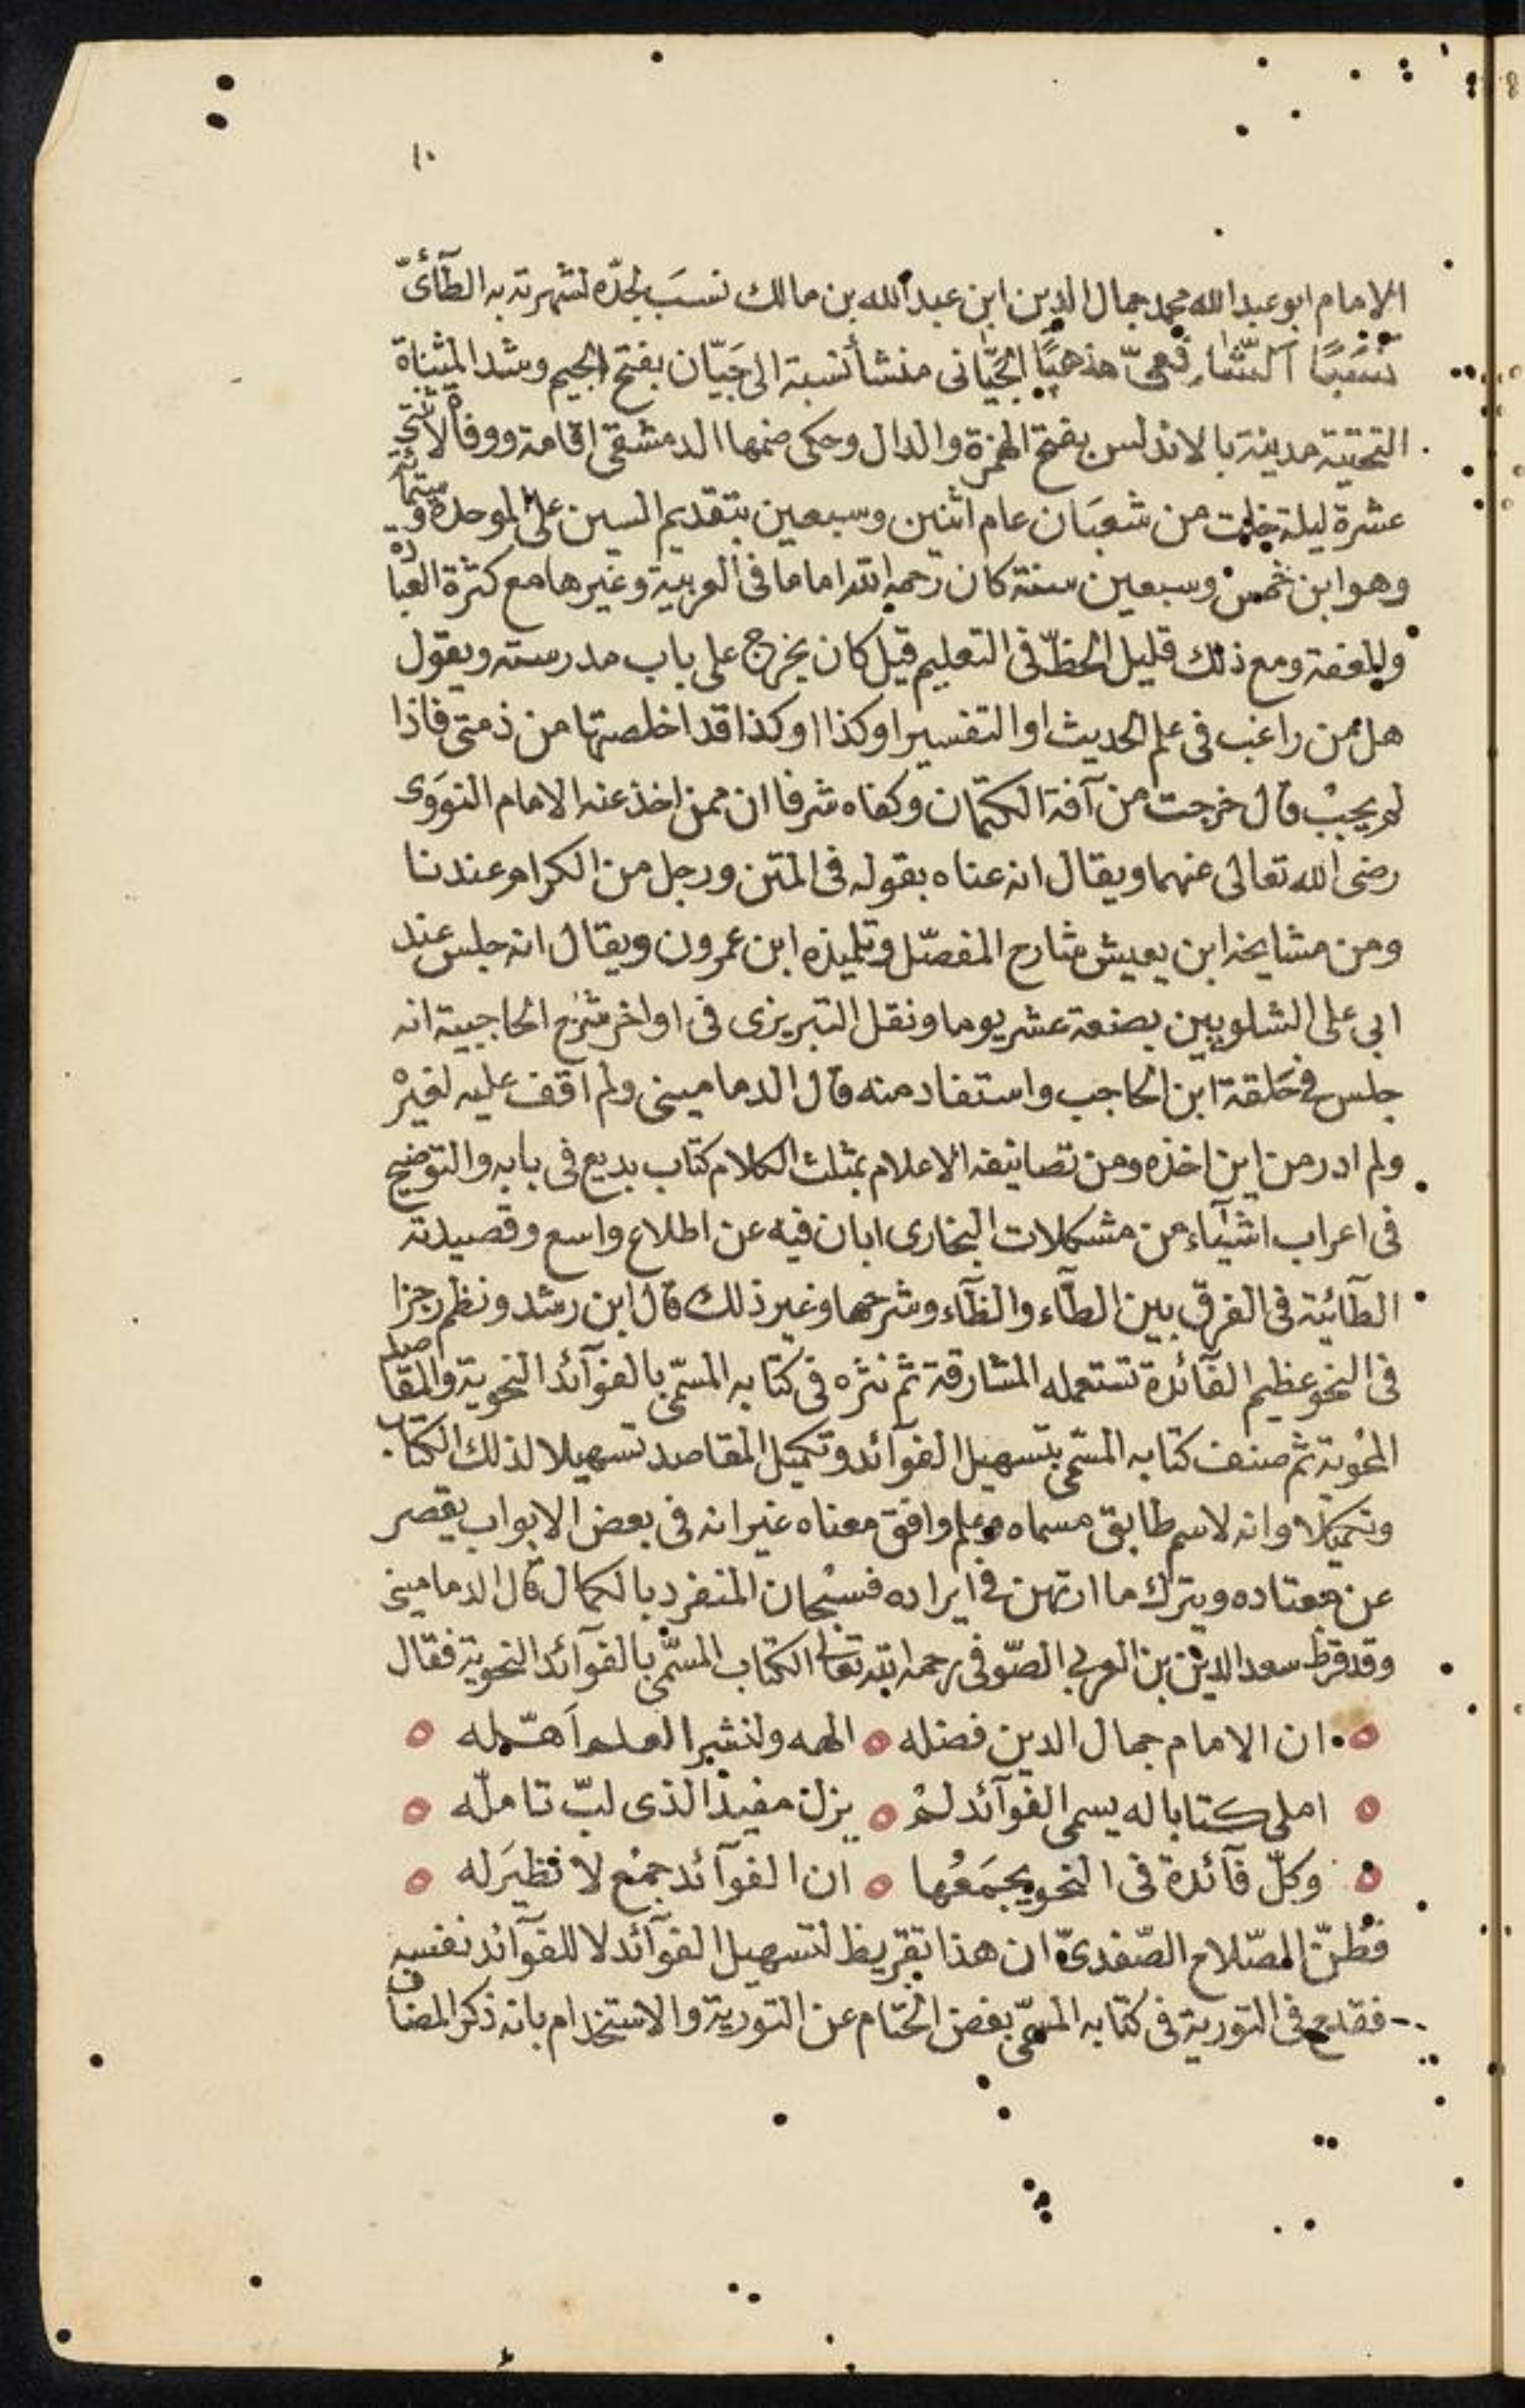 ١٠
الامام ابو عبد الله محمد جمال الدين ابن عبد الله بن مالك نسبَ لجدّه لشهرته به الطآئىّ
نسَبًا الشّافعىّ مذهبًا الجَيّانى منشأ نسبة الى جَيّان بفتح الجيم وشد المثناة
التحتية مدينة بالاندلس بفتح الهمزة والدال وحكى ضمها الدمشقى اقامة ووفاة لاثنتى
عشرة ليلة خلت من شعبَان عام اثنين وسبعين بتقديم السين على الموحدة وستمائة
وهو ابن خمس وسبعين سنة كان رحمه الله اماما فى العربية وغيرها مع كثرة العبادة
والعفة ومع ذلك قليل الحظّ فى التعليم قيل كان يخرج على باب مدرسته ويقول
هل من راغب فى علم الحديث او التفسير او كذا او كذا قد اخلصتها من ذمتى فاذا
لم يجبْ قال خرجت من آفة الكتمان وكفاه شرفا ان ممن اخذ عنه الامام النووَى
رضى الله تعالى عنهما ويقال انه عناه بقوله فى المتن ورجل من الكرام عندنا
ومن مشايخه ابن يعيش شارح المفصّل وتلميذه ابن عمرون ويقال انه جلس عند
ابى على الشلوبين بضعة عشر يوما ونقل التبريزى فى اواخر شرح الحاجبية انه
جلس فى حَلقة ابن الحاجب واستفاد منه قال الدمامينى ولم اقف عليه لغيرْ
ولم ادر من اين اخذه ومن تصانيفه الاعلام بمثلث الكلام كتاب بديع فى بابه والتوضيح
فى اعراب اشيآء من مشكلات البخارى ابان فيه عن اطلاع واسع وقصيدته
الطآئية فى الفرق بين الطآء والظآء وشرحها وغير ذلك قال ابن رشد ونظم رجزا
فى النحو عظيم الفآئدة تستعمله المشارقة ثم نثره فى كتابه المسمّى بالفوآئد النحوية والمقاصد
المحْوية ثم صنف كتابه المسّمى بتسهيل الفوآئد وتكميل المقاصد تسهيلا لذلك الكتاب
وتكميلا وانه لاسم طابق مسماه وعلم وافق معناه غير انه فى بعض الابواب يقصر
عن معتاده ويترك ما ارتهن فى ايراده فسبْحان المنفرد بالكمال قال الدمامينى
وقد قرظ سعد الدين بن العربى الصّوفى رحمه الله تعالى الكتاب المسمّى بالفوآئد النحوية فقال
ان الامام جمال الدين فضله ۝ الهه ولنشر العلم اَهّله
املى كتابا له يسمى الفوآئد لمْ ۝ يزل مفيدا لذى لبّ تامله
وكلّ فآئدة فى النحو يجمَعُها ۝ ان الفوآئد جمْع لا نظيرَ له
فظنّ الصّلاح الصّفدىّ ان هذا تقريظ لتسهيل الفوآئد لا للفوآئد نفسه
فقدح فى التورية فى كتابه المسمّى بفض الختام عن التورية والاستخدام بانه ذكر المضاف